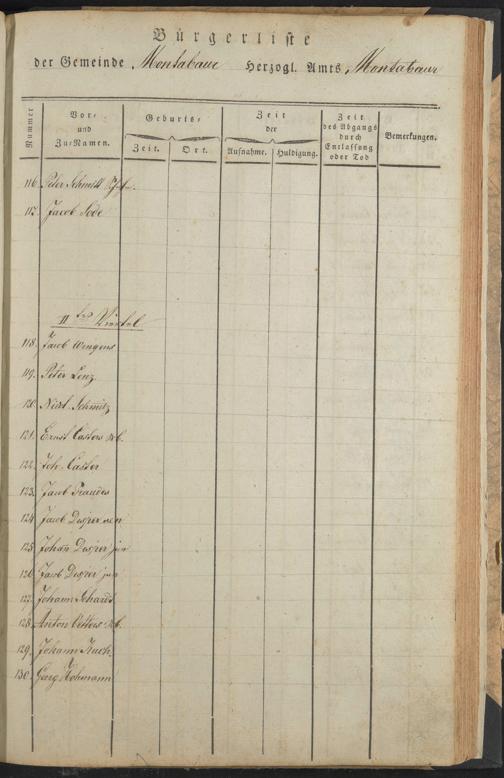 Bürgerliste
der Gemeinde Montabaur Herzogl. Amts Montabaur
Nummer
Vor- und Zu-Namen.
Geburts-
Zeit.
Ort.
Zeit der
Aufnahme.
Huldigung.
Zeit des Abgangs durch Entlassung oder Tod
Bemerkungen.
116. Peter Schmitt
117. Jacob
II tes Viertel
118. Jacob Wengens
119. Peter Lenz
120. Schmitz
121. Ernst Casters
122. Joh. Caster
123. Jacob
124. Jacob Desper sen
125. Johann Desper jun
126. Jacob Desper jun
127. Johann Schardt
128. Anton
129. Johann
130. Georg Hohmann